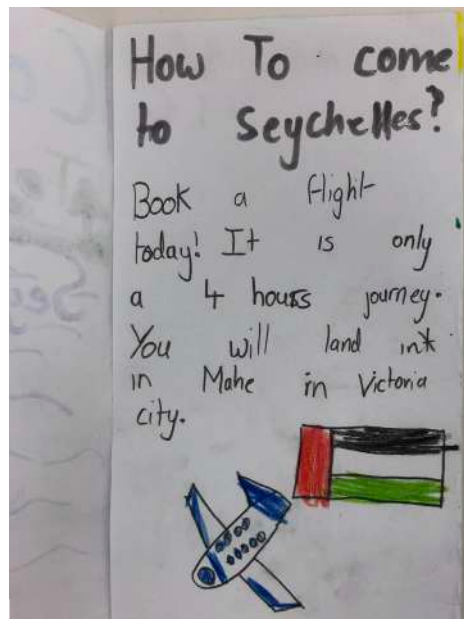 How To come
to Seychelles?
Book a flight
today! It is only
a 4 hours journey.
You will land in
in Mahe in Victoria
city.